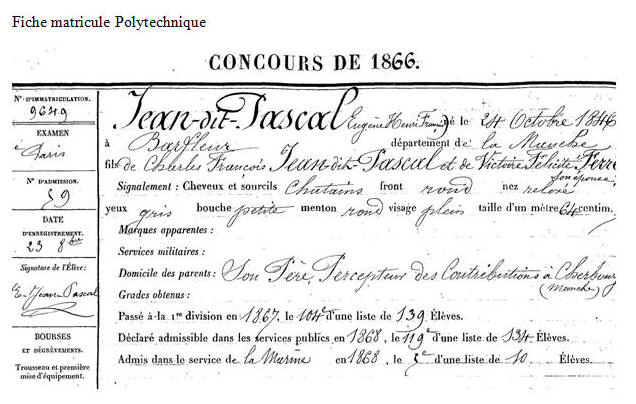 Fiche matricule Polytechnique
CONCOURS DE 1866.
N° D'IMMATRICULATION.
9649
EXAMEN
à Paris
N° D'ADMISSION.
59
DATE
D'ENREGISTREMENT.
23 8bre
Signature de l'Élève:
E. Jean-Pascal
BOURSES
ET DÉGRÈVEMENTS.
Trousseau et première
mise d'équipement.
Jean-dit-Pascal (Eugène Henri Franç.) né le 24 Octobre 1846
à Barfleur département de la Manche
fils de Charles François Jean-dit-Pascal et de Victoire Félicité Ferré
son épouse.
Signalement : Cheveux et sourcils chatains front rond nez relevé
yeux gris bouche petite menton rond visage plein taille d'un mètre 64 centim.
Marques apparentes :
Services militaires :
Domicile des parents : Son Père, Percepteur des Contributions à Cherbourg
(Manche)
Grades obtenus :
Passé à la 1re division en 1867, le 104e d'une liste de 139 Élèves.
Déclaré admissible dans les services publics en 1868, le 119e d'une liste de 134 Élèves.
Admis dans le service de la Marine en 1868, le 5e d'une liste de 10 Élèves.